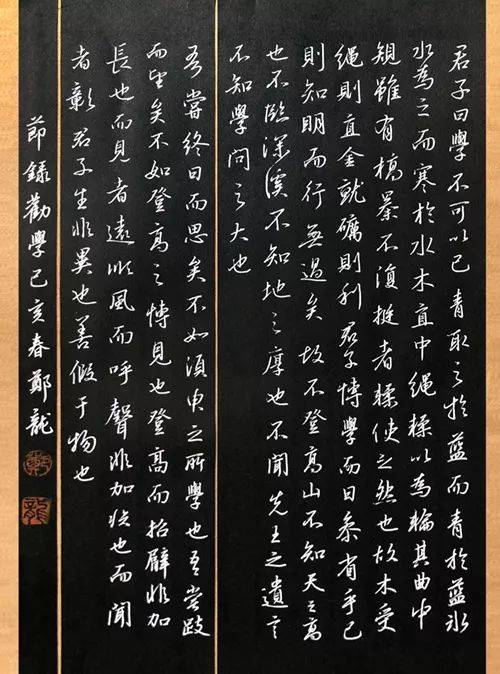 君子曰學不可以已青取之於藍而青於藍冰
水為之而寒於水木直中繩輮以為輪其曲中
規雖有槁暴不復挺者輮使之然也故木受
繩則直金就礪則利君子博學而日參省乎己
則知明而行無過矣故不登高山不知天之高
也不臨深溪不知地之厚也不聞先王之遺言
不知學問之大也
吾嘗終日而思矣不如須臾之所學也吾嘗跂
而望矣不如登高之博見也登高而招臂非加
長也而見者遠順風而呼聲非加疾也而聞
者彰君子生非異也善假于物也
節錄勸學己亥春鄭龍
鄭
龍